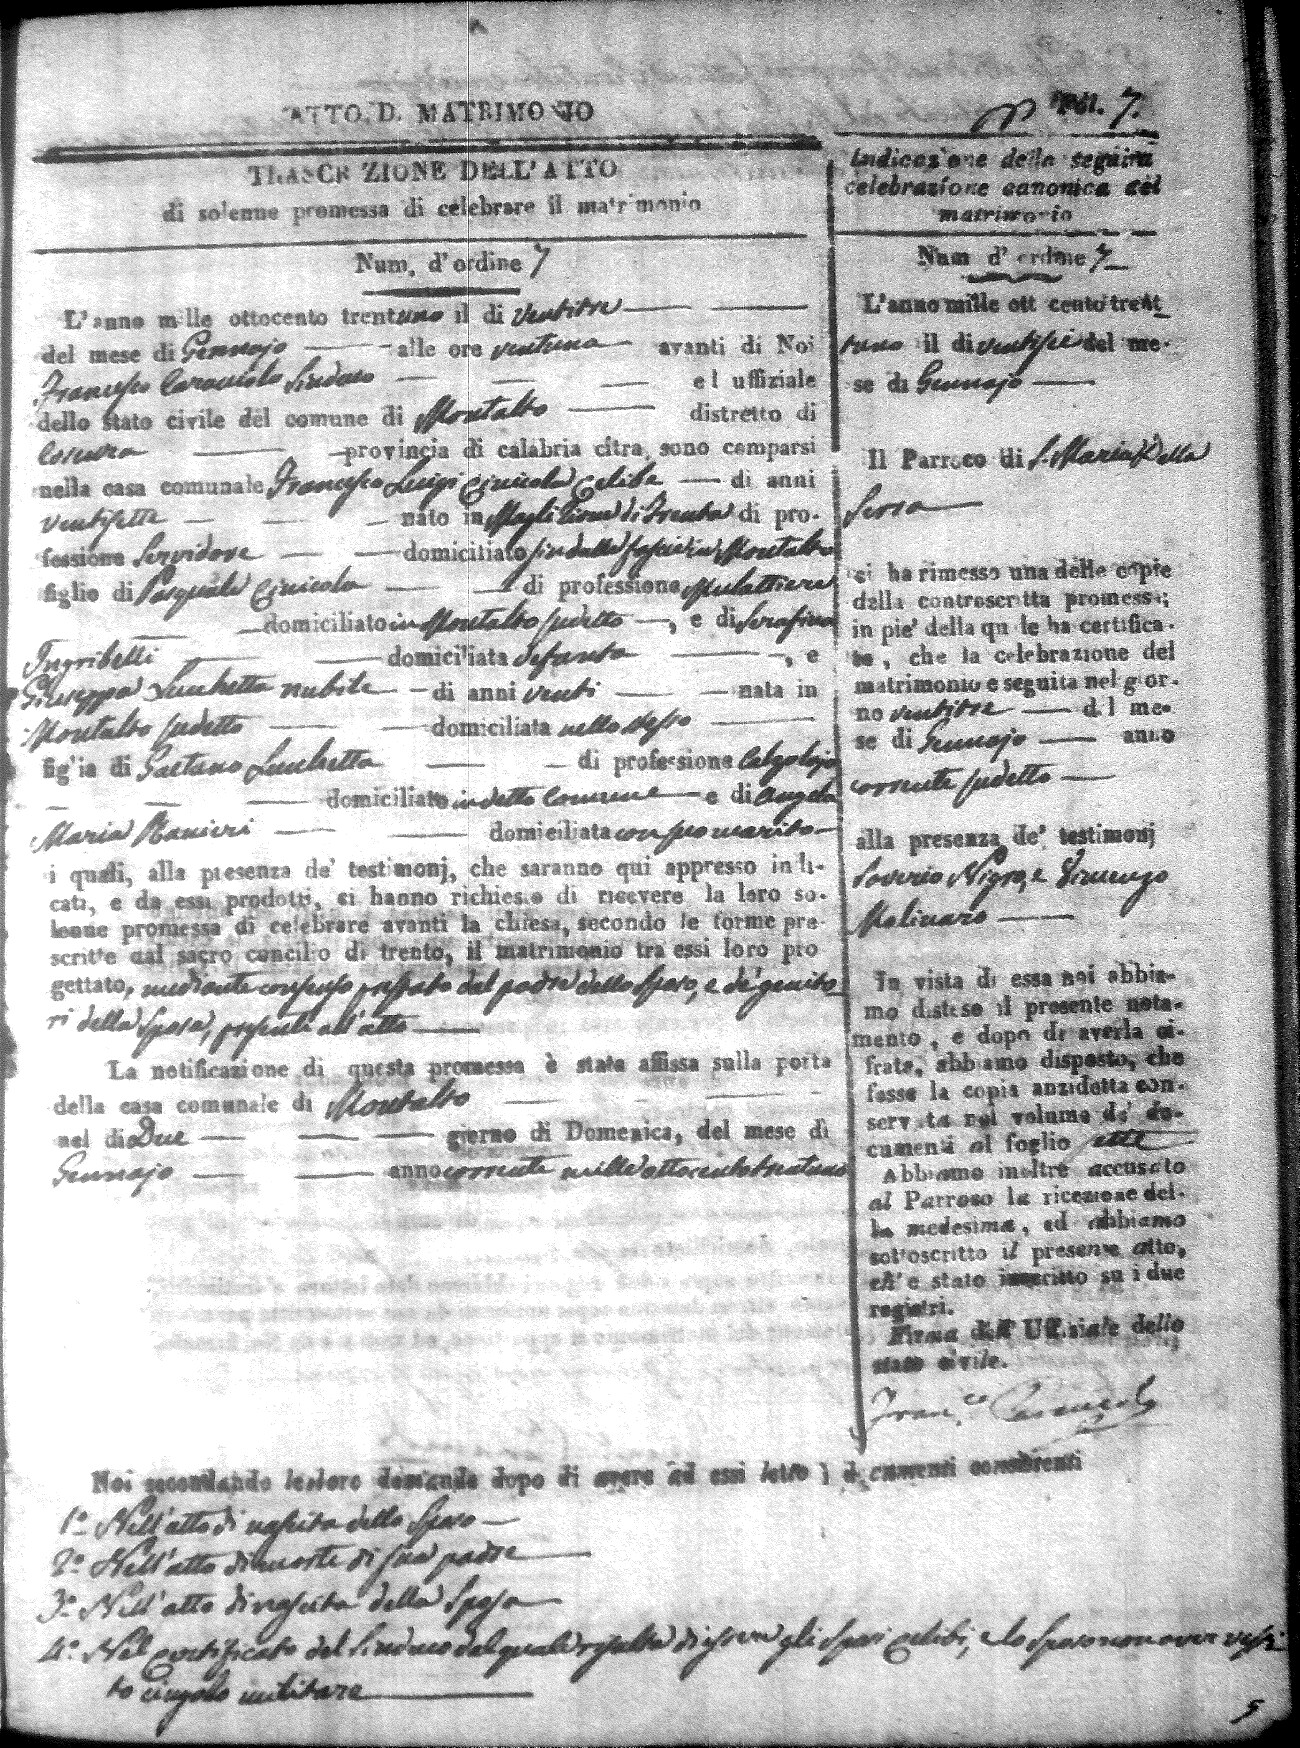 ATTO D. MATRIMONIO
Fol. 7.
TRASCRIZIONE DELL'ATTO
di solenne promessa di celebrare il matrimonio
Num. d'ordine 7
L'anno mille ottocento trentuno il di ventitre
del mese di Gennajo alle ore ventuna avanti di Noi
Francesco Caracciolo Sindaco ed uffiziale
dello stato civile del comune di Montalto distretto di
Cosenza provincia di calabria citra, sono comparsi
nella casa comunale Francesco Luigi Cinicola Celibe di anni
ventisette nato in di Trenta di pro-
fessione Servidore domiciliato fin dalla fascie in Montalto
figlio di Pasquale Cinicola di professione Mulattiere
domiciliato in Montalto sudetto, e di Serafina
Ingribelli domiciliata defunta, e
Giuseppa Luchetta nubile di anni venti nata in
Montalto sudetto domiciliata nello stesso
figlia di Gaetano Luchetta di professione Calzolajo
domiciliato in detto Comune e di Angela
Maria Ranieri domiciliata con suo marito
i quali, alla presenza de' testimonj, che saranno qui appresso indi-
cati, e da essi prodotti, ci hanno richiesto di ricevere la loro so-
lenne promessa di celebrare avanti la chiesa, secondo le forme pre-
scritte dal sacro concilio di trento, il matrimonio tra essi loro pro
gettato, mediante consenso passato dal padre dello Sposo, e de' genito-
ri della Sposa, presenti all'atto
La notificazione di questa promessa è stata affissa sulla porta
della casa comunale di Montalto
nel di Due giorno di Domenica, del mese di
Gennajo anno corrente mille ottocento trentuno
Indicazione della seguita
celebrazione canonica del
matrimonio
Num d'ordine 7
L'anno mille ottocento trent
tuno il di ventisei del me-
se di Gennajo
Il Parroco di S. Maria della
Serra
ci ha rimesso una delle copie
della controscritta promessa;
in pie' della quale ha certifica-
to, che la celebrazione del
matrimonio e seguita nel gior-
no ventitre del me-
se di Gennajo anno
corrente sudetto
alla presenza de' testimonj
Saverio Nigro, e Vincenzo
Molinaro
In vista di essa noi abbia-
mo disteso il presente nota-
mento, e dopo di averla ci-
frata, abbiamo disposto, che
fosse la copia anzidetta con-
servata nel volume de' do-
cumenti al foglio
Abbiamo inoltre accusato
al Parroco la ricezione del-
la medesima, ed abbiamo
sottoscritto il presente atto,
ch'e stato inscritto su i due
registri.
Firma dell'Uffiziale dello
stato civile.
Noi secondando la loro domanda dopo di avere ad essi letto i documenti consistenti
1.° Nell'atto di nascita dello Sposo
2.° Nell'atto di morte di sua padre
3.° Nell'atto di nascita della Sposa
4.° Nel certificato del Sindaco dal quale risulta di essere gli sposi celibi, e lo sposo non aver vesti
to cingolo militare
5